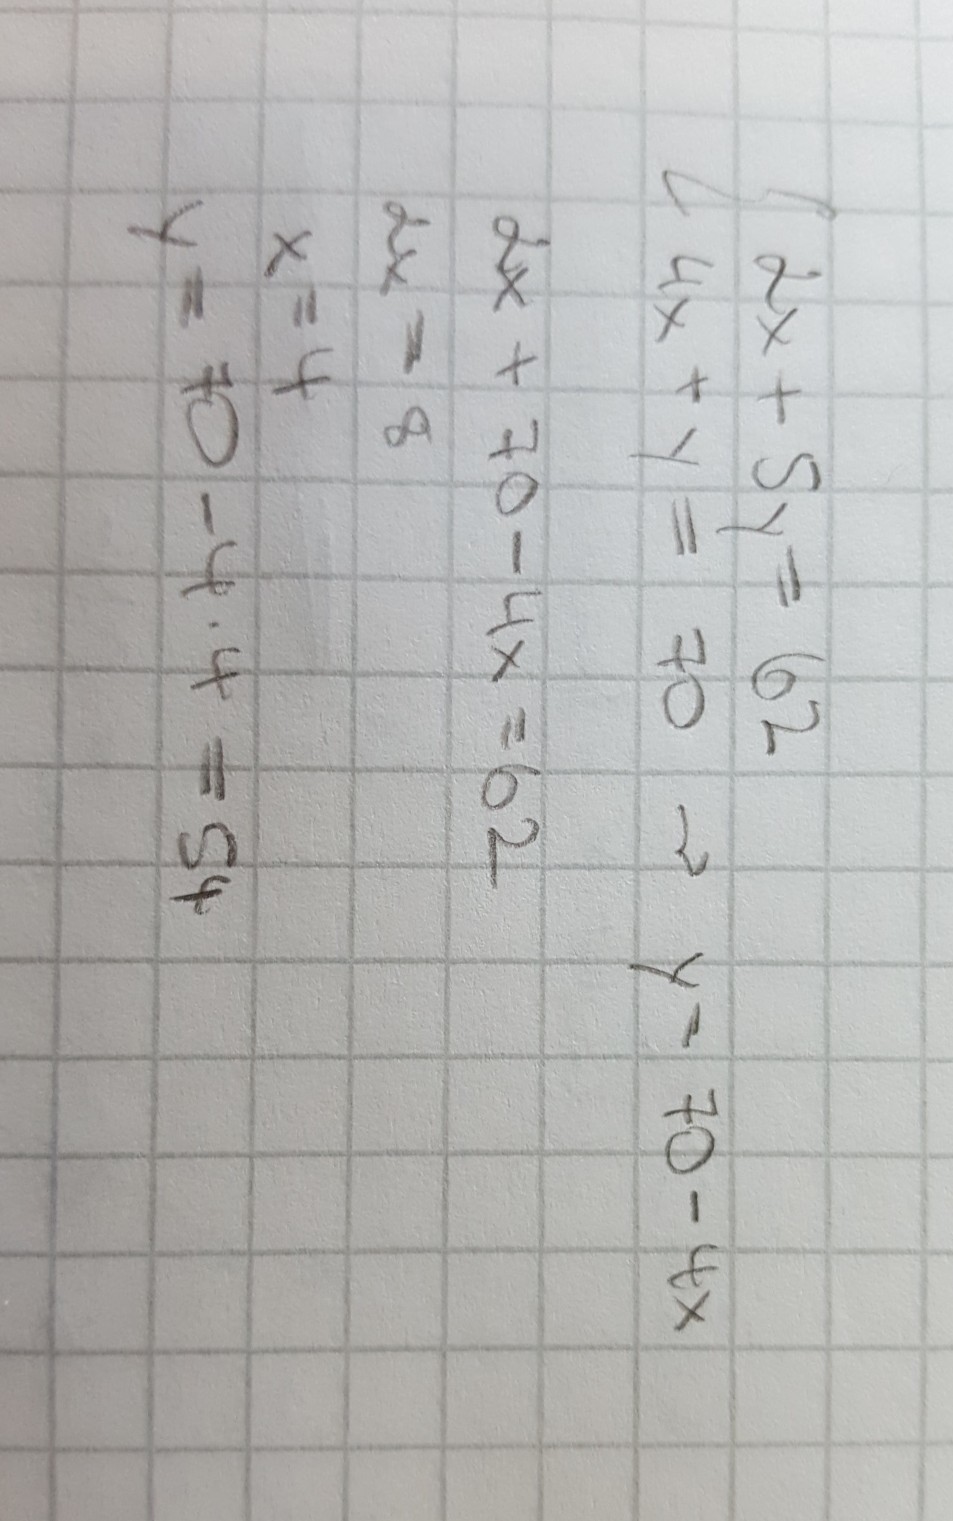 { 2x + 5y = 62
4x + y = 70 ~> y = 70 - 4x
2x + 70 - 4x = 62
2x = 8
x = 4
y = 70 - 4 · 4 = 54